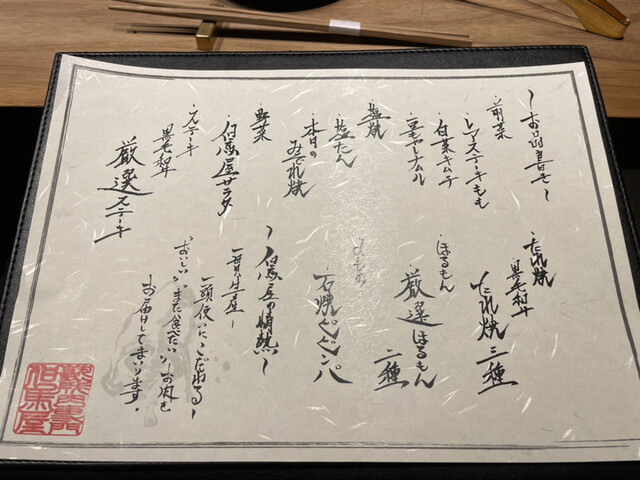 〜お品書き〜
前菜
・レアステーキもも
・白菜キムチ
・豆もやしナムル
塩焼
・塩たん
・本日のみぞれ焼
野菜
・但馬屋サラダ
・ステーキ
黒毛和牛
厳選ステーキ
たれ焼
黒毛和牛
たれ焼三種
ほるもん
厳選ほるもん二種
石焼ビビンバ
〜但馬屋の情熱〜
一貫生産〜
一頭使いにこだわる〜
おいしい、また食べたい、お肉を
お届けしてまいります。
但馬屋